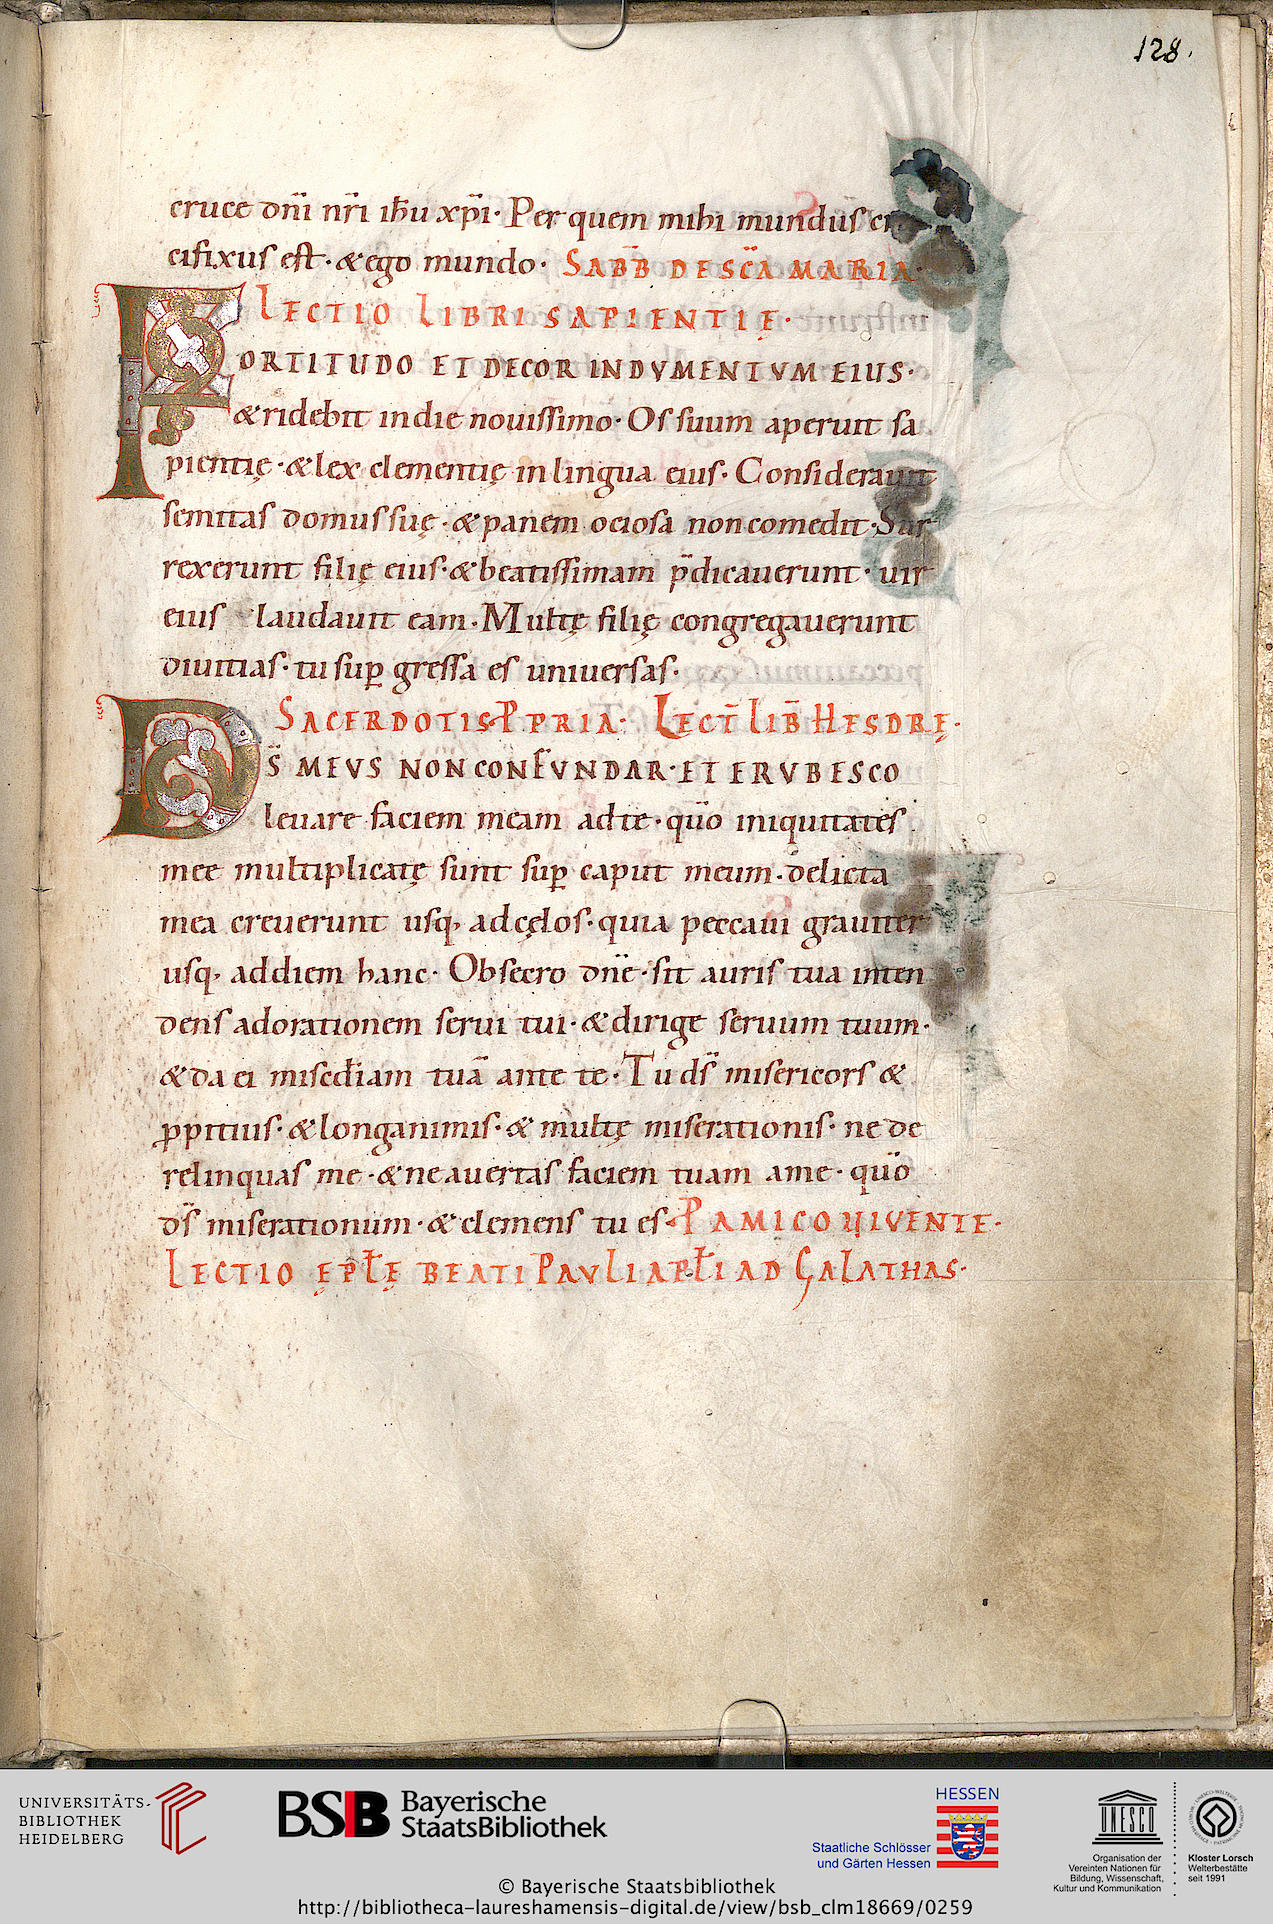 128.
cruce dn̄i nr̄i ih̄u xp̄i· Per quem mihi mundus cru
cifixus est· & ego mundo· SABB̄ DE SC̄A MARIA·
LECTIO LIBRI SAPIENTIĘ·
FORTITUDO ET DECOR INDVMENTVM EIUS·
& ridebit in die nouissimo· Os suum aperuit sa
pientię· & lex clementię in lingua eius· Considerauit
semitas domus suę· & panem ociosa non comedit· Sur
rexerunt filię eius· & beatissimam p̄dicauerunt· uir
eius laudauit eam· Multę filię congregauerunt
diuitias· tu suꝑ gressa es uniuersas·
SACERDOTIS P̱PRIA· LECT̄ LIB̄ HESDRĘ·
DS̄ MEVS NON CONFVNDAR· ET ERVBESCO
leuare faciem meam ad te· qūo iniquitates
mee multiplicatę sunt suꝑ caput meum· delicta
mea creuerunt usq, ad cęlos· quia peccaui grauiter
usq, ad diem hanc· Obsecro dn̄e· sit auris tua inten
dens ad orationem serui tui· & dirige seruum tuum·
& da ei miscd̄iam tuā ante te· Tu ds̄ misericors &
ꝓpitius· & longanimis· & multę miserationis· ne de
relinquas me· & ne auertas faciem tuam a me· qūo
ds̄ miserationum· & clemens tu es· P AMICO UIVENTE·
LECTIO ĘPŁĘ BEATI PAVLI APŁI AD GALATHAS·
UNIVERSITÄTS-
BIBLIOTHEK
HEIDELBERG
BSB Bayerische
StaatsBibliothek
HESSEN
Staatliche Schlösser
und Gärten Hessen
UNESCO
Organisation der
Vereinten Nationen für
Bildung, Wissenschaft,
Kultur und Kommunikation
Kloster Lorsch
Welterbestätte
seit 1991
© Bayerische Staatsbibliothek
http://bibliotheca-laureshamensis-digital.de/view/bsb_clm18669/0259